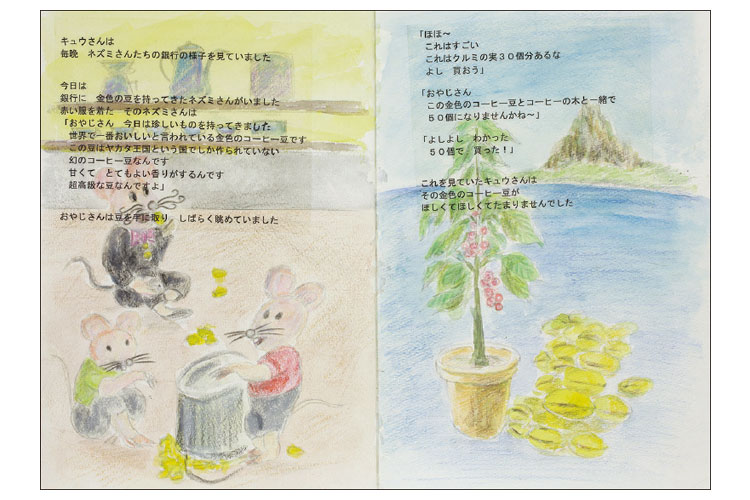 キュウさんは
毎晩　ネズミさんたちの銀行の様子を見ていました
今日は
銀行に　金色の豆を持ってきたネズミさんがいました
赤い服を着た　そのネズミさんは
「おやじさん　今日は珍しいものを持ってきました
世界で一番おいしいと言われている金色のコーヒー豆です
この豆はヤカタ王国という国でしか作られていない
幻のコーヒー豆なんです
甘くて　とてもよい香りがするんです
超高級な豆なんですよ」
おやじさんは豆を手に取り　しばらく眺めていました
「ほほ～
これはすごい
これはクルミの実３０個分あるな
よし　買おう」
「おやじさん
この金色のコーヒー豆とコーヒーの木と一緒で
５０個になりませんかね～」
「よしよし　わかった
５０個で　買った！」
これを見ていたキュウさんは
その金色のコーヒー豆が
ほしくてほしくてたまりませんでした